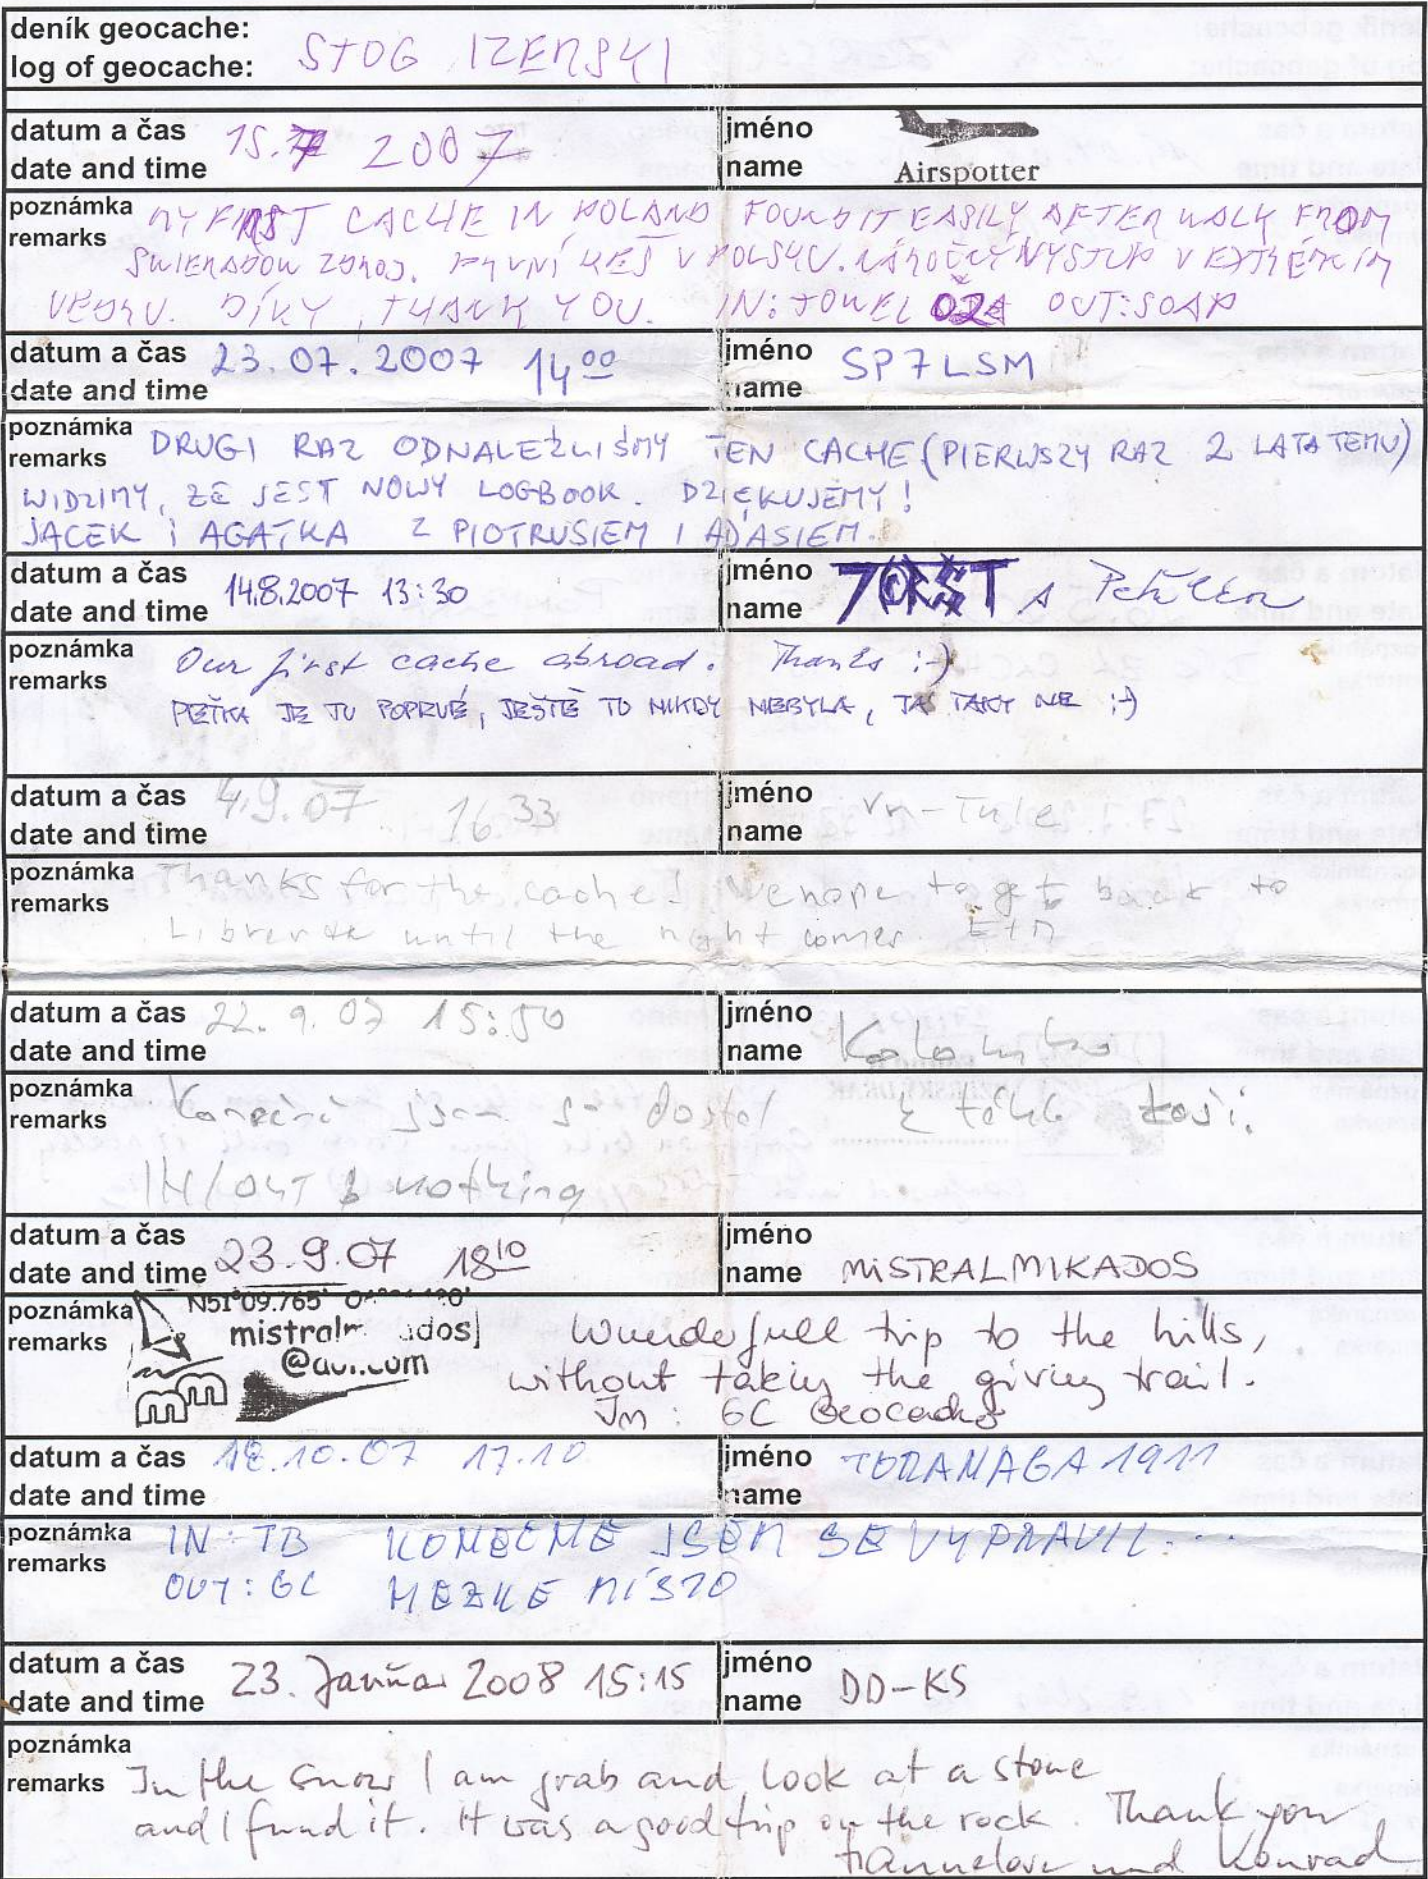 deník geocache:
log of geocache: STOG IZERSKI
datum a čas
date and time 15.7 2007
jméno
name Airspotter
poznámka
remarks MY FIRST CACHE IN POLAND FOUND IT EASILY AFTER WALK FROM
SWIERADOW ZDROJ. PRVNÍ KEŠ V POLSKU. NÁROČNÝ VÝSTUP V EXTRÉMNÍM
VEDRU. DÍKY, THANK YOU. IN: TOWEL OUT: SOAP
datum a čas
date and time 23.07.2007 14 00
jméno
name SP7LSM
poznámka
remarks DRUGI RAZ ODNALEŹLIŚMY TEN CACHE (PIERWSZY RAZ 2 LATA TEMU)
WIDZIMY, ŻE JEST NOWY LOGBOOK. DZIĘKUJEMY!
JACEK i AGATKA Z PIOTRUSIEM I ADASIEM.
datum a čas
date and time 14.8.2007 13:30
jméno
name A
poznámka
remarks Our first cache abroad. Thanks :-)
PEŤKA JE TU POPRVÉ, JEŠTĚ TU NIKDY NEBYLA, JÁ TAKY NE ;-)
datum a čas
date and time 4.9.07 16 33
jméno
name
poznámka
remarks Thanks for the cache! We hope to get back to
until the night comes.
datum a čas
date and time 22.9.07 15:50
jméno
name
poznámka
remarks Konečně jsem se dostal k téhle keši.
IN/OUT nothing
datum a čas
date and time 23.9.07 18 10
jméno
name MiSTRALMIKADOS
poznámka
remarks N51°09.765'
@aol.com
Wuenderfull trip to the hills,
without taking the giving trail.
Jn: GC Geocache
datum a čas
date and time 18.10.07 17.10
jméno
name TORANAGA1911
poznámka
remarks IN: TB KONEČNĚ JSEM SE VYPRAVIL...
OUT: GC HEZKÉ MÍSTO
datum a čas
date and time 23. Januar 2008 15:15
jméno
name DD-KS
poznámka
remarks In the snow I am grab and look at a stone
and I fund it. It was a good trip on the rock. Thank you
Hannelore und Konrad